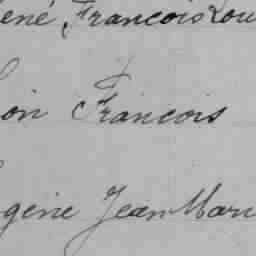 ené, Francois Lou
on Francois
gene Jean Mari